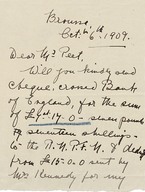 Brousna
Oct: 6th 1909.
Dear Mr Peet.
Will you kindly send
cheque, crossed Bank
of England, for the sum
of £7-17-0 - seven pounds
seventeen shillings -
to the R. & debit
from £15.0.0 sent by
Mrs Kennedy for my